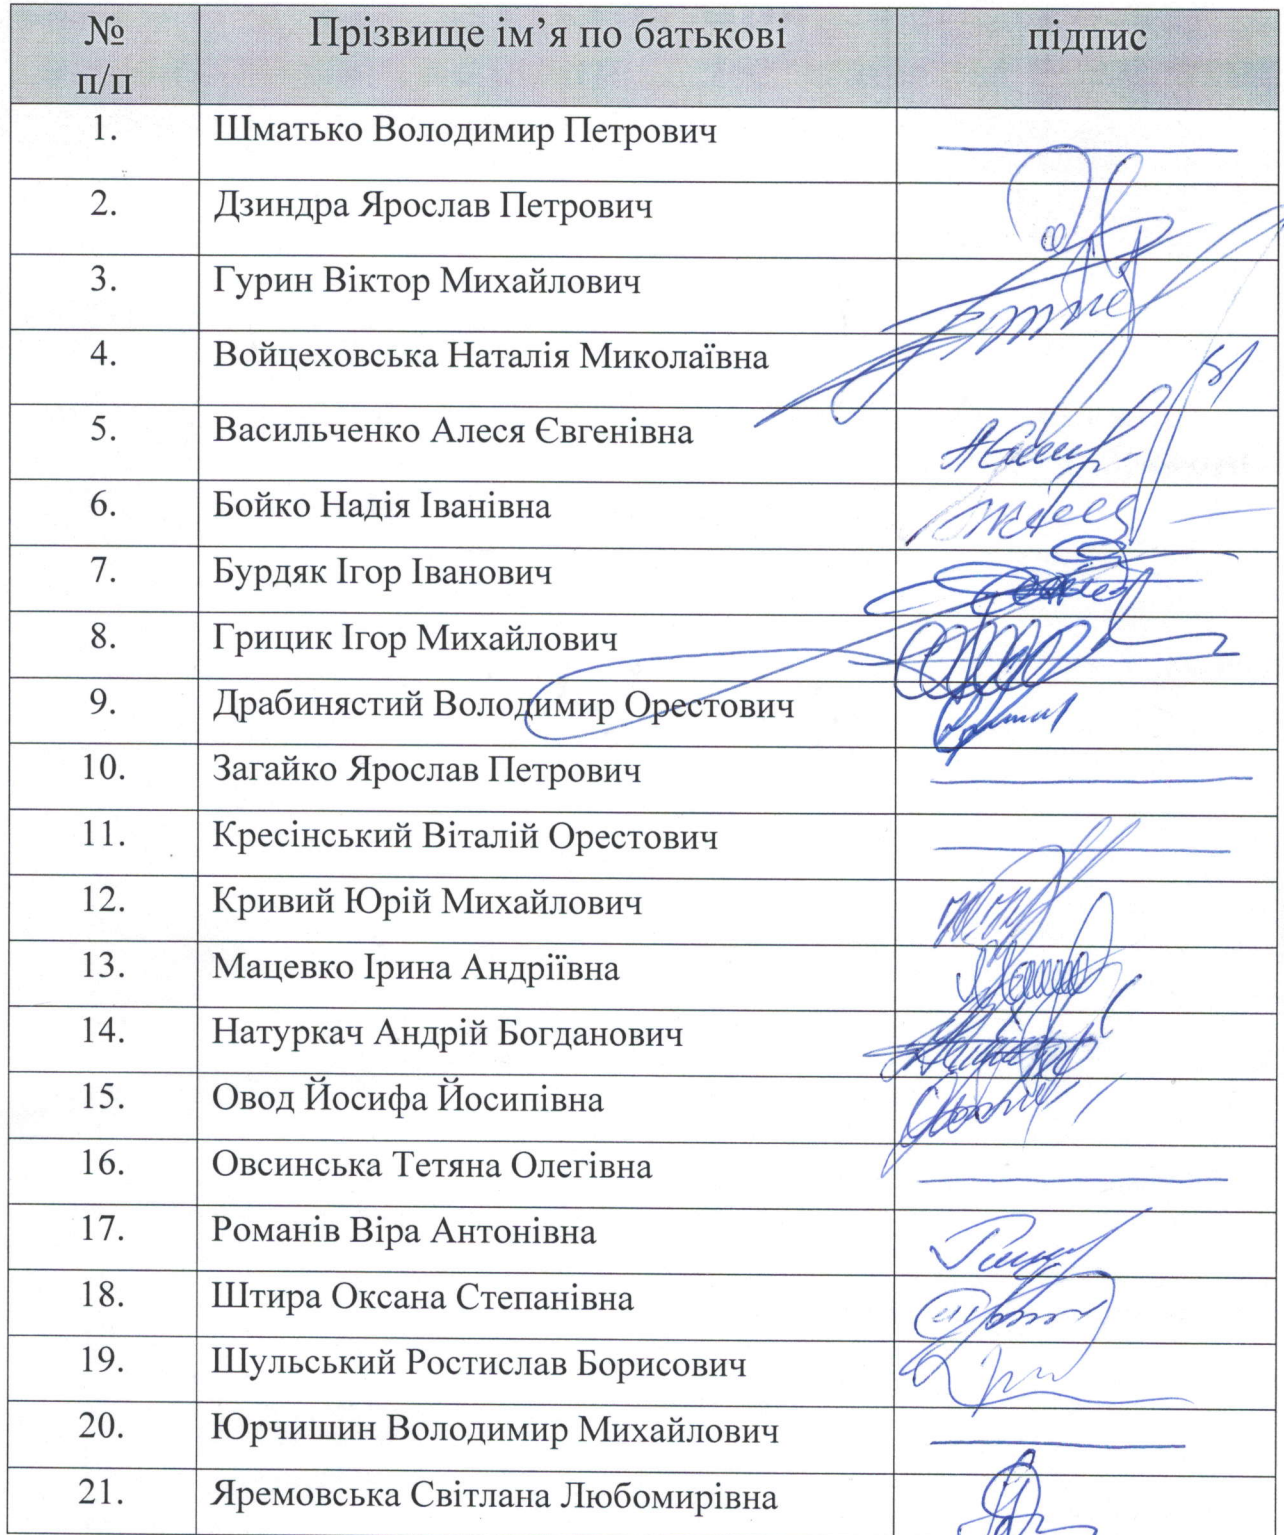 № Прізвище ім’я по батькові підпис
п/п
1. Шматько Володимир Петрович
2. Дзиндра Ярослав Петрович
3. Гурин Віктор Михайлович
4. Войцеховська Наталія Миколаївна
5. Васильченко Алеся Євгенівна
6. Бойко Надія Іванівна
7. Бурдяк Ігор Іванович
8. Грицик Ігор Михайлович
9. Драбинястий Володимир Орестович
10. Загайко Ярослав Петрович
11. Кресінський Віталій Орестович
12. Кривий Юрій Михайлович
13. Мацевко Ірина Андріївна
14. Натуркач Андрій Богданович
15. Овод Йосифа Йосипівна
16. Овсинська Тетяна Олегівна
17. Романів Віра Антонівна
18. Штира Оксана Степанівна
19. Шульський Ростислав Борисович
20. Юрчишин Володимир Михайлович
21. Яремовська Світлана Любомирівна